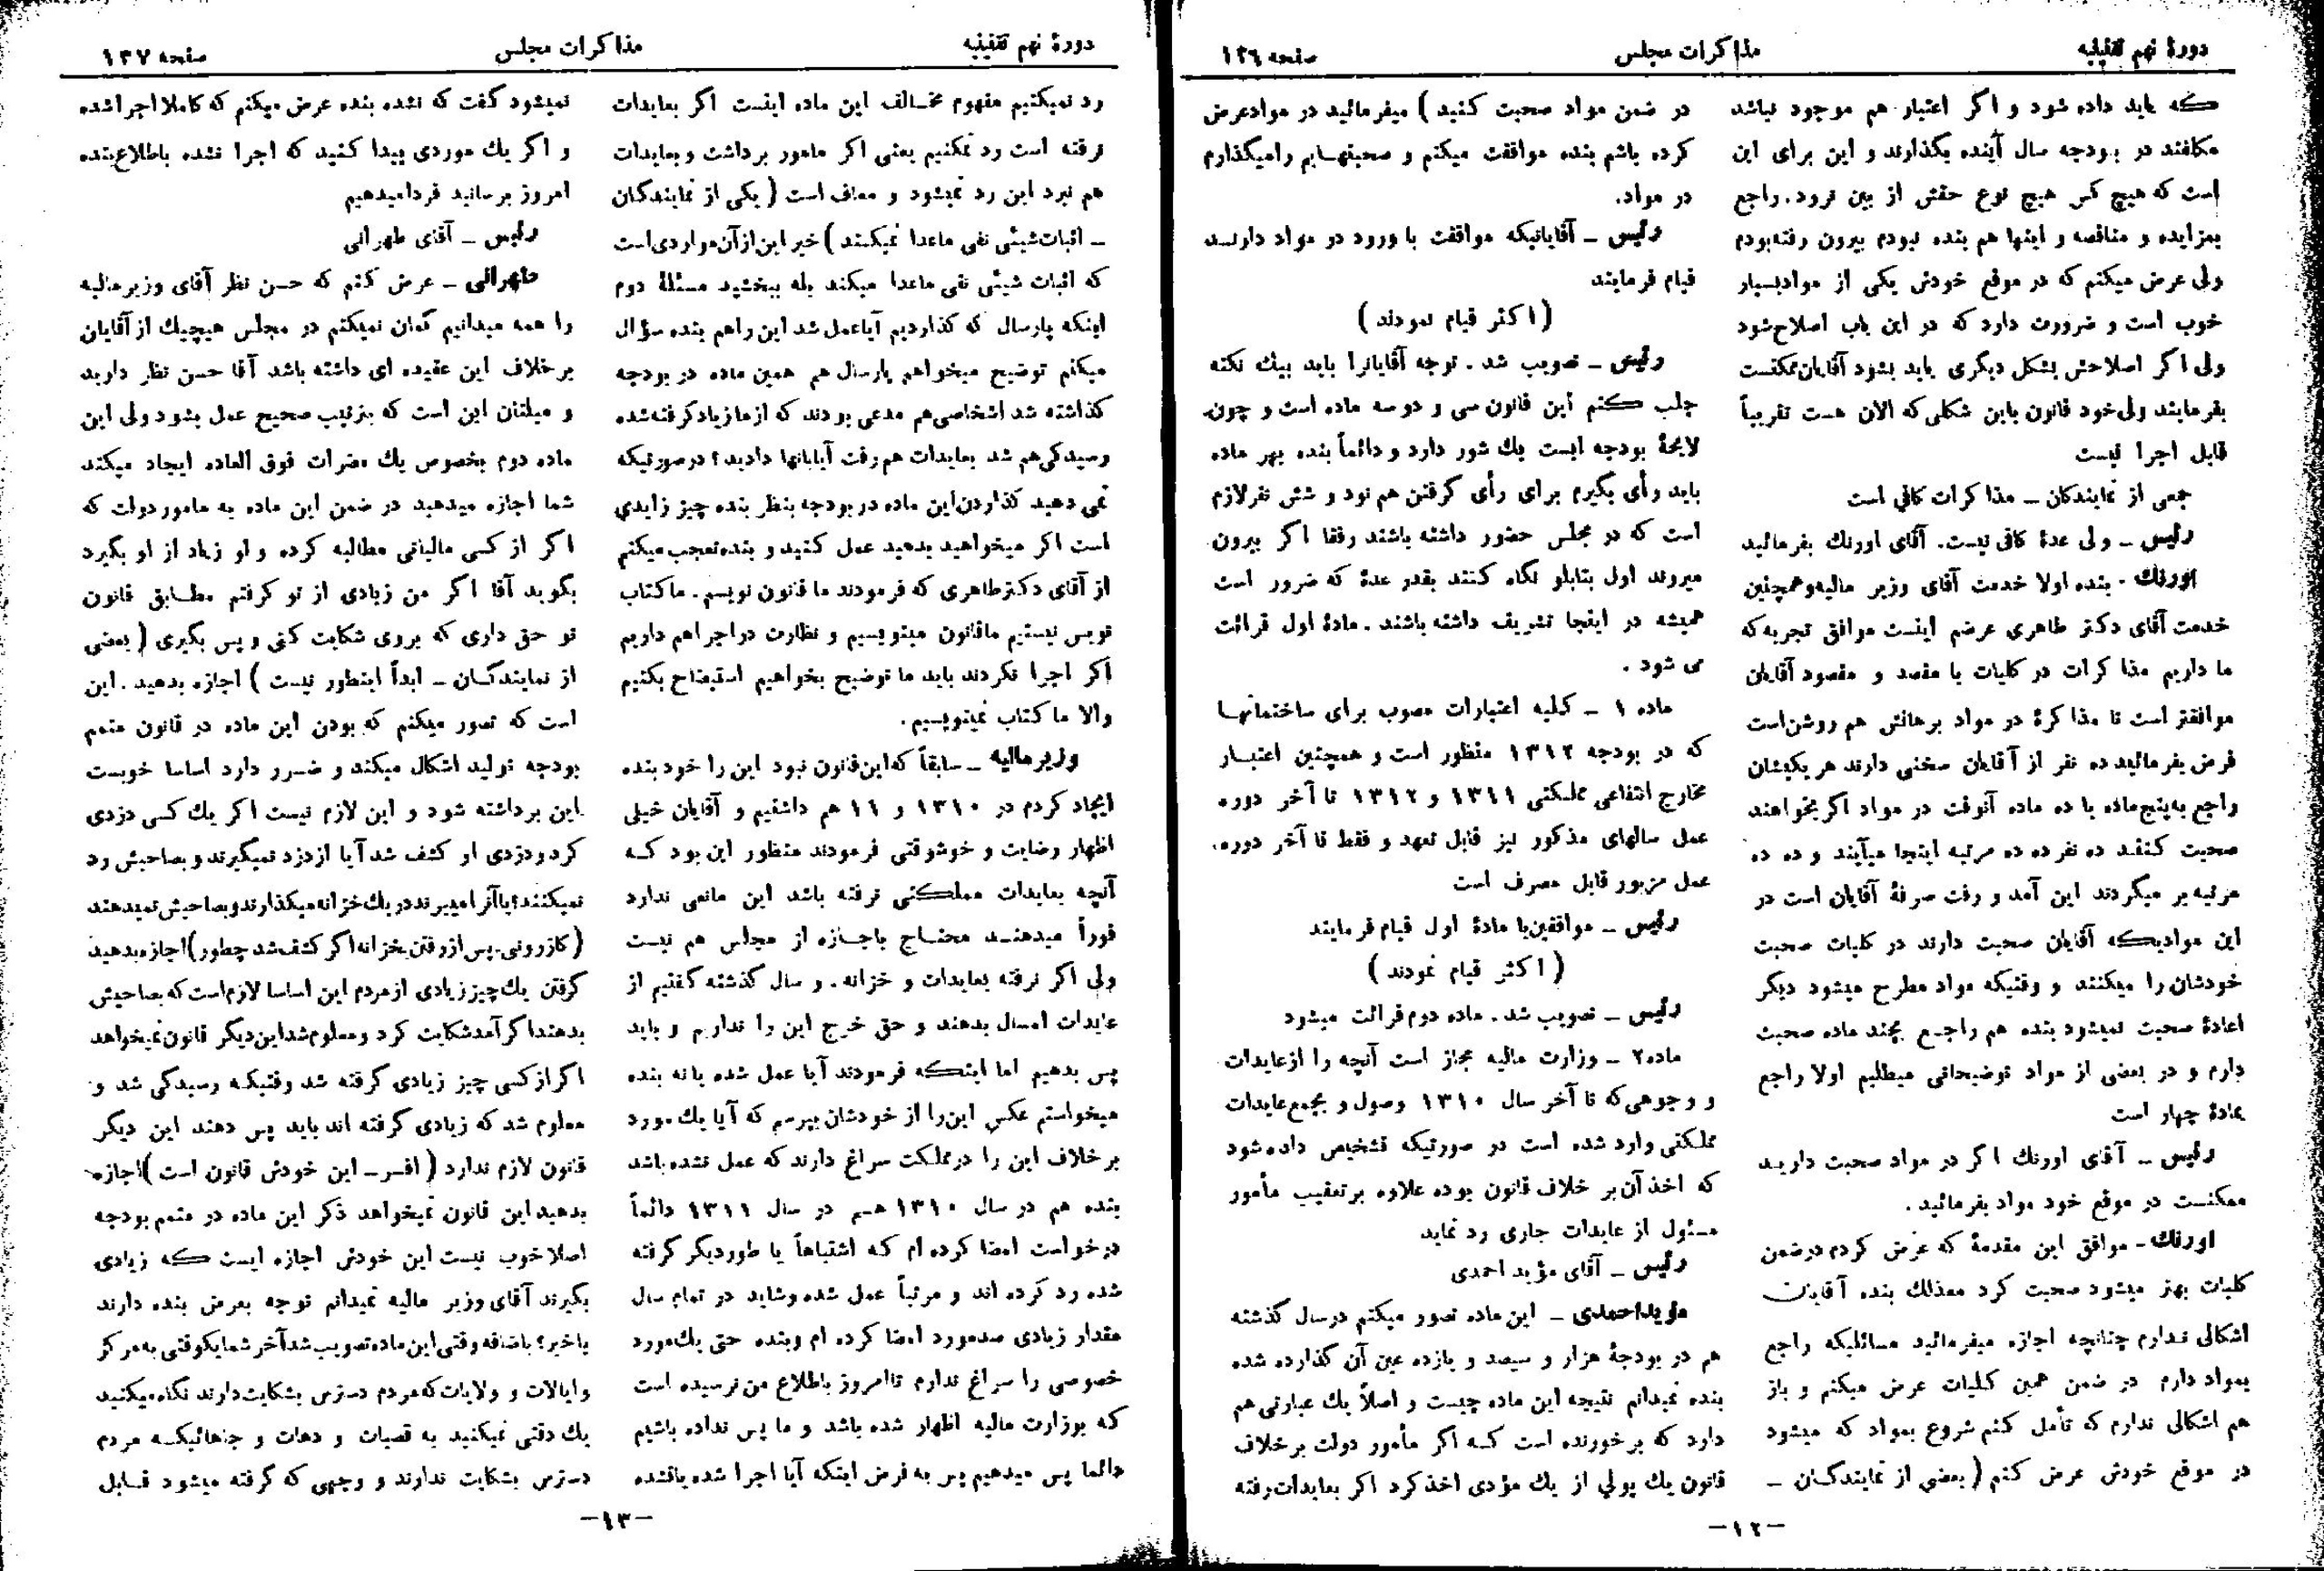 دورهٔ نهم تقنینیه
مذاکرات مجلس
صفحه ۱۳۶
که باید داده شود و اگر اعتبار هم موجود نباشد
مکلفند در بودجه سال آینده بگذارند و این برای این
است که هیچ کس هیچ نوع حقش از بین نرود. راجع
بمزایده و مناقصه و اینها هم بنده نبودم بیرون رفته‌بودم
ولی عرض میکنم که در موقع خودش یکی از مواد بسیار
خوب است و ضرورت دارد که در این باب اصلاح شود
ولی اگر اصلاحش بشکل دیگری باید بشود آقایان ممکنست
بفرمایند ولی خود قانون باین شکلی که الان هست تقریباً
قابل اجرا نیست
جمعی از نمایندکان ــ مذاکرات کافی است
رئیس ــ ولی عدهٔ کافی نیست. آقای اورنك بفرمائید
اورنك . بنده اولا خدمت آقای وزیر مالیه و همچنین
خدمت آقای دکتر طاهری عرضم اینست موافق تجربه که
ما داریم مذاکرات در کلیات با مقصد و مقصود آقایان
موافقتر است تا مذاکرهٔ در مواد برهانش هم روشن است
فرض بفرمائید ده نفر از آقایان سخنی دارند هر یکیشان
راجع به پنج ماده یا ده ماده آنوقت در مواد اگر بخواهند
صحبت کنند ده نفر ده ده مرتبه اینجا میآیند و ده ده
مرتبه بر میگردند این آمد و رفت صرفهٔ آقایان است در
این موادیکه آقایان صحبت دارند در کلیات صحبت
خودشان را میکنند و وقتیکه مواد مطرح میشود دیگر
اعادهٔ صحبت نمیشود بنده هم راجع بچند ماده صحبت
دارم و در بعضی از مواد توضیحاتی میطلبم اولا راجع
بمادهٔ چهار است
رئیس ــ آقای اورنك اگر در مواد صحبت دارید
ممکنست در موقع خود مواد بفرمائید .
اورنك ــ موافق این مقدمهٔ که عرض کردم در ضمن
کلیات بهتر میشود صحبت کرد معذلك بنده آقایان
اشکالی ندارم چنانچه اجازه میفرمائید مسائلیکه راجع
بمواد دارم در ضمن همین کلیات عرض میکنم و باز
هم اشکالی ندارم که تأمل کنم شروع بمواد که میشود
در موقع خودش عرض کنم ( بعضی از نمایندکان ــ
در ضمن مواد صحبت کنید ) میفرمائید در مواد عرض
کرده باشم بنده موافقت میکنم و صحبتهایم را میگذارم
در مواد.
رئیس ــ آقایانیکه موافقت با ورود در مواد دارند
قیام فرمایند
( اکثر قیام نمودند )
رئیس ــ تصویب شد . توجه آقایانرا باید بیك نکته
جلب کنم این قانون سی و دو سه ماده است و چون
لایحهٔ بودجه ایست یك شور دارد و دائماً بنده بهر ماده
باید رأی بگیرم برای رأی گرفتن هم نود و شش نفر لازم
است که در مجلس حضور داشته باشند رفقا اگر بیرون
میروند اول بتابلو نگاه کنند بقدر عدهٔ که ضرور است
همیشه در اینجا تشریف داشته باشند . مادهٔ اول قرائت
می شود .
ماده ۱ ــ کلیه اعتبارات مصوب برای ساختمانها
که در بودجه ۱۳۱۲ منظور است و همچنین اعتبار
مخارج انتفاعی مملکتی ۱۳۱۱ و ۱۳۱۲ تا آخر دوره
عمل سالهای مذکور نیز قابل تعهد و فقط تا آخر دوره
عمل مزبور قابل مصرف است
رئیس ــ موافقین با مادهٔ اول قیام فرمایند
( اکثر قیام نمودند )
رئیس ــ تصویب شد . ماده دوم قرائت میشود
ماده۲ ــ وزارت مالیه مجاز است آنچه را از عایدات
و وجوهی که تا آخر سال ۱۳۱۰ وصول و بجمع عایدات
مملکتی وارد شده است در صورتیکه تشخیص داده شود
که اخذ آن بر خلاف قانون بوده علاوه بر تعقیب مأمور
مسئول از عایدات جاری رد نماید
رئیس ــ آقای مؤید احمدی
مؤیداحمدی ــ این ماده تصور میکنم در سال گذشته
هم در بودجهٔ هزار و سیصد و یازده عین آن گذارده شده
بنده نمیدانم نتیجه این ماده چیست و اصلاً یك عبارتی هم
دارد که بر خورنده است که اگر مأمور دولت برخلاف
قانون یك پولی از یك مؤدی اخذ کرد اکر بعایدات رفته
ــ۱۲ــ
دورهٔ نهم تقنینیه
مذاکرات مجلس
صفحه ۱۳۷
رد نمیکنیم مفهوم مخالف این ماده اینست اگر بعایدات
نرفته است رد نمکنیم یعنی اکر مامور برداشت و بعایدات
هم نبرد این رد نمیشود و معاف است ( یکی از نمایندکان
ــ اثبات شیئی نفی ماعدا نمیکند ) خیر این از آن مواردی است
که اثبات شیئی نفی ماعدا میکند بله ببخشید مسئلهٔ دوم
اینکه پارسال که کذاردیم آیا عمل شد این را هم بنده سؤال
میکنم توضیح میخواهم پارسال هم همین ماده در بودجه
کذاشته شد اشخاصی هم مدعی بودند که از ما زیاد گرفته شده
رسیدکی هم شد بعایدات هم رفت آیا بانها دادید؟ در صورتیکه
نمی دهید کذاردن این ماده در بودجه بنظر بنده چیز زایدی
است اکر میخواهید بدهید عمل کنید و بنده تعجب میکنم
از آقای دکتر طاهری که فرمودند ما قانون نویسم . ما کتاب
نویس نیستیم ما قانون مینویسیم و نظارت در اجرا هم داریم
اکر اجرا نکردند باید ما توضیح بخواهیم استیضاح بکنیم
والا ما کتاب نمینویسیم.
وزیرمالیه ــ سابقاً که این قانون نبود این را خود بنده
ایجاد کردم در ۱۳۱۰ و ۱۱ هم داشتیم و آقایان خیلی
اظهار رضایت و خوشوقتی فرمودند منظور این بود که
آنچه بعایدات مملکتی نرفته باشد این مانعی ندارد
فوراً میدهند محتاج باجازه از مجلس هم نیست
ولی اکر نرفته بعایدات و خزانه . و سال گذشته گفتیم از
عایدات امسال بدهند و حق خرج این را نداریم و باید
پس بدهیم اما اینکه فرمودند آیا عمل شده یا نه بنده
میخواستم عکس این را از خودشان بپرسم که آیا یك مورد
برخلاف این را در مملکت سراغ دارند که عمل نشده باشد
بنده هم در سال ۱۳۱۰ هم در سال ۱۳۱۱ دائماً
درخواست امضا کرده ام که اشتباهاً یا طور دیگر گرفته
شده رد کرده اند و مرتباً عمل شده و شاید در تمام سال
مقدار زیادی صدمورد امضا کرده ام و بنده حتی یك مورد
خصوصی را سراغ ندارم تا امروز باطلاع من نرسیده است
که بوزارت مالیه اظهار شده باشد و ما پس نداده باشیم
دائما پس میدهیم پس به فرض اینکه آیا اجرا شده یا نشده
نمیشود گفت که نشده بنده عرض میکنم که کاملا اجرا شده
و اگر یك موردی پیدا کنید که اجرا نشده باطلاع بنده
امروز برسانید فردا میدهیم
رئیس ــ آقای طهرانی
طهرانی ــ عرض کنم که حسن نظر آقای وزیر مالیه
را همه میدانیم گمان نمیکنم در مجلس هیچیك از آقایان
برخلاف این عقیده ای داشته باشد آقا حسن نظر دارید
و میلتان این است که بترتیب صحیح عمل بشود ولی این
ماده دوم بخصوص یك مضرات فوق العاده ایجاد میکند
شما اجازه میدهید در ضمن این ماده به مامور دولت که
اگر از کسی مالیاتی مطالبه کرده و او زیاد از او بگیرد
بگوید آقا اگر من زیادی از تو کرفتم مطابق قانون
تو حق داری که بروی شکایت کنی و پس بگیری ( بعضی
از نمایندگان ــ ابداً اینطور نیست ) اجازه بدهید . این
است که تصور میکنم که بودن این ماده در قانون متمم
بودجه تولید اشکال میکند و ضرر دارد اساسا خوبست
این برداشته شود و این لازم نیست اکر یك کسی دزدی
کرد و دزدی او کشف شد آیا از دزد نمیگیرند و بصاحبش رد
نمیکنند؟ یا آنرا میبرند در یك خزانه میکذارند و بصاحبش نمیدهند
(کازرونی ـ پس از رفتن بخزانه اکر کشف شد چطور) اجازه بدهید
گرفتن یك چیز زیادی از مردم این اساسا لازم است که بصاحبش
بدهند اکر آمد شکایت کرد و معلوم شد این دیگر قانون نمیخواهد
اکر از کسی چیز زیادی گرفته شد وقتیکه رسیدکی شد و
معلوم شد که زیادی گرفته اند باید پس دهند این دیگر
قانون لازم ندارد ( افسر ــ این خودش قانون است ) اجازه
بدهید این قانون نمیخواهد ذکر این ماده در متمم بودجه
اصلا خوب نیست این خودش اجازه ایست که زیادی
بگیرند آقای وزیر مالیه نمیدانم توجه بعرض بنده دارند
یا خیر؟ باضافه وقتی این ماده تصویب شد آخر شما یکوقتی به مرکز
و ایالات و ولایات که مردم دسترس بشکایت دارند نگاه میکنید
یك دقتی نمیکنید به قصبات و دهات و جاهائیکه مردم
دسترس بشکایت ندارند و وجهی که گرفته میشود قابل
ــ۱۳ــ